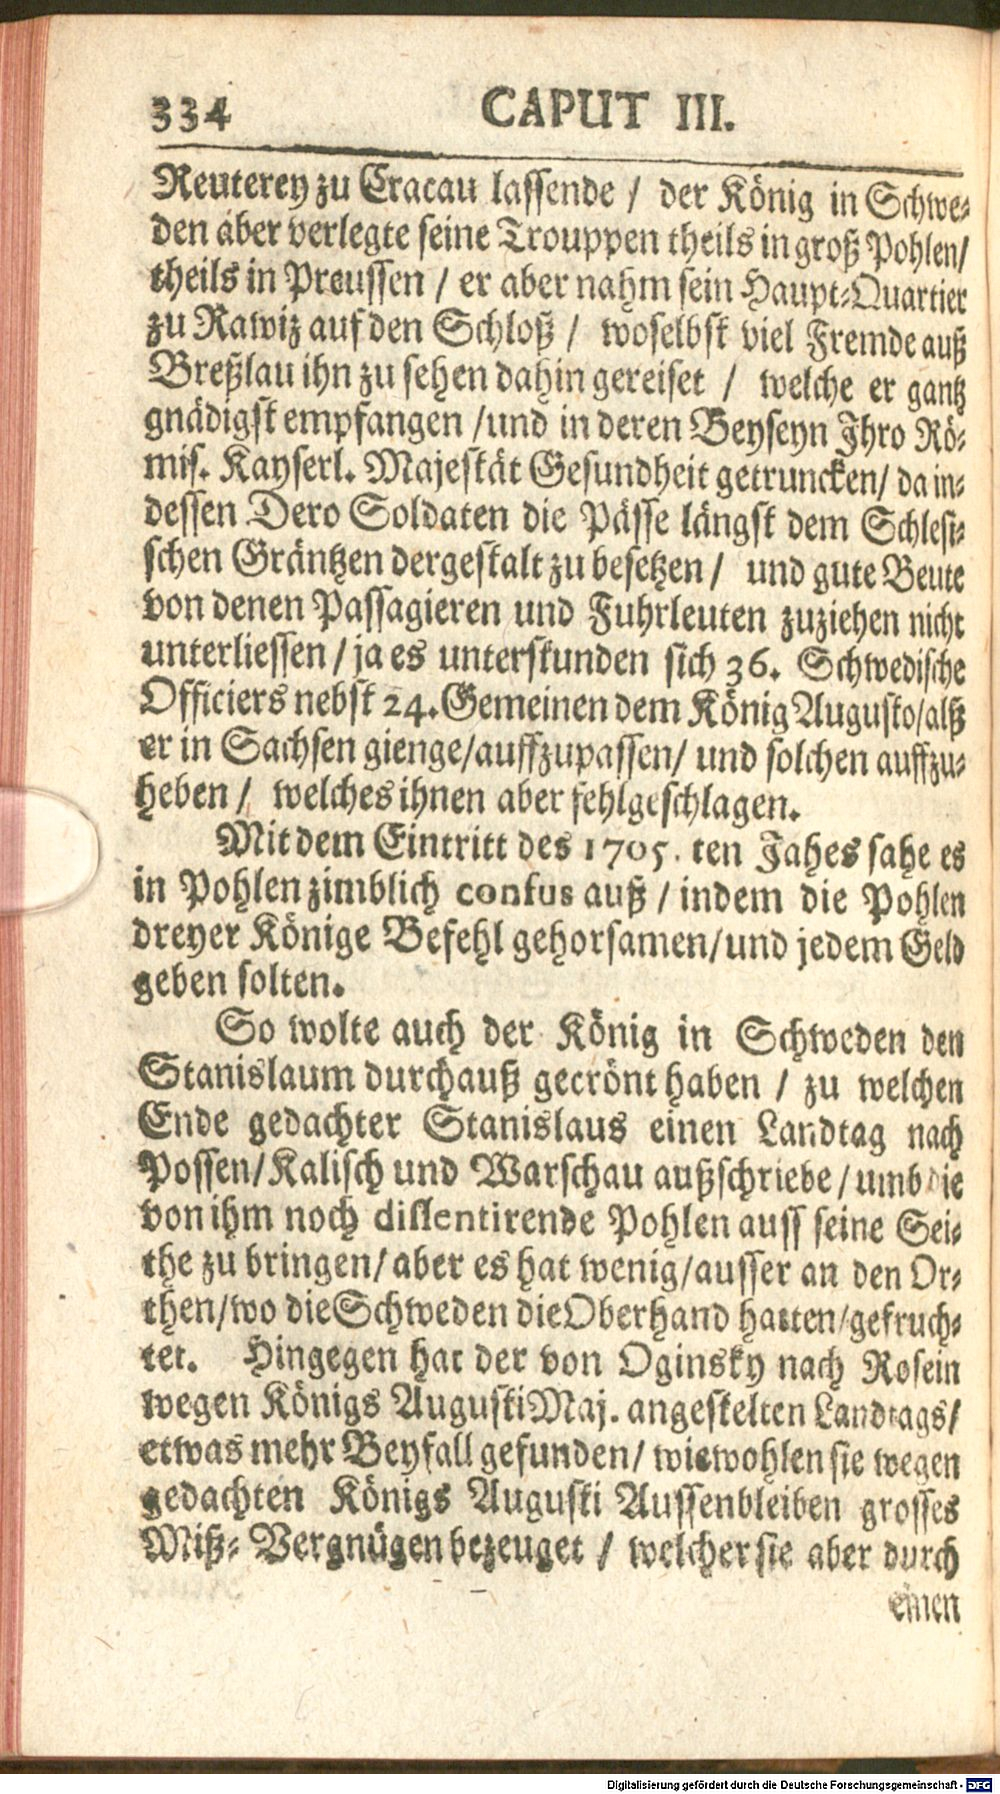 334 CAPUT III.
Reuterey zu Cracau lassende / der König in Schwe-
den aber verlegte seine Trouppen theils in groß Pohlen/
theils in Preussen / er aber nahm sein Haupt-Quartier
zu Rawiz auf den Schloß / woselbst viel Fremde auß
Breßlau ihn zu sehen dahin gereiset / welche er gantz
gnädigst empfangen /und in deren Beyseyn Ihro Rö-
mis. Kayserl. Majestät Gesundheit getruncken/ da in-
dessen Dero Soldaten die Pässe längst dem Schlesi-
schen Gräntzen dergestalt zu besetzen / und gute Beute
von denen Passagieren und Fuhrleuten zuziehen nicht
unterliessen / ja es unterstunden sich 36. Schwedische
Officiers nebst 24. Gemeinen dem König Augusto/alß
er in Sachsen gienge/auffzupassen/ und solchen auffzu-
heben / welches ihnen aber fehlgeschlagen.
Mit dem Eintritt des 1705. ten Jahes sahe es
in Pohlen zimblich confus auß / indem die Pohlen
dreyer Könige Befehl gehorsamen/und jedem Geld
geben solten.
So wolte auch der König in Schweden den
Stanislaum durchauß gecrönt haben / zu welchen
Ende gedachter Stanislaus einen Landtag nach
Possen/Kalisch und Warschau außschriebe / umb die
von ihm noch dissentirende Pohlen auss seine Sei-
the zu bringen/ aber es hat wenig/ausser an den Or-
then/wo die Schweden die Oberhand hatten/gefruch-
tet. Hingegen hat der von Oginsky nach Rosein
wegen Königs Augusti Maj. angestelten Landtags/
etwas mehr Beyfall gefunden/ wiewohlen sie wegen
gedachten Königs Augusti Aussenbleiben grosses
Miß-Vergnügen bezeuget / welcher sie aber durch
einen
Digitalisierung gefördert durch die Deutsche Forschungsgemeinschaft - DFG